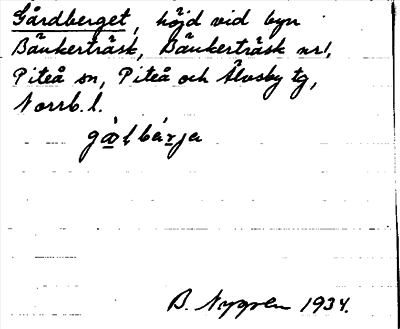 Gårdberget, höjd vid byn
Bänkerträsk, Bänkerträsk nr 1,
Piteå sn, Piteå och Älvsby tg,
Norrb. l.
B. Nygren 1934.